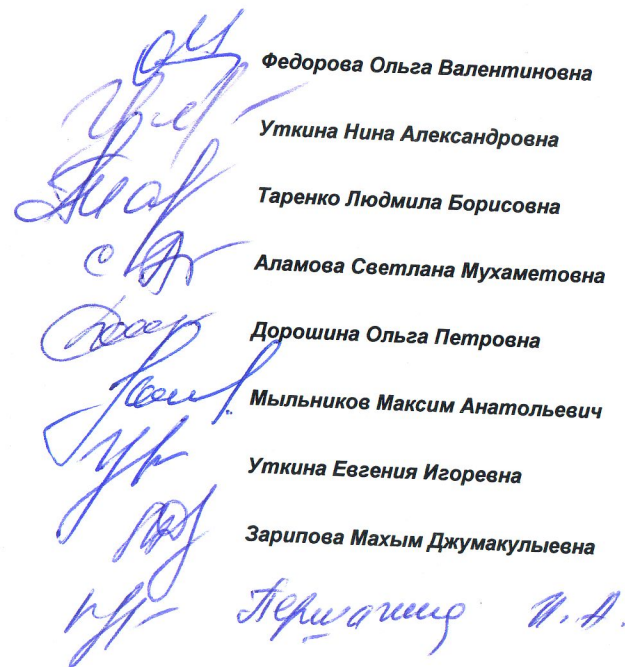 Федорова Ольга Валентиновна
Уткина Нина Александровна
Таренко Людмила Борисовна
Аламова Светлана Мухаметовна
Дорошина Ольга Петровна
Мыльников Максим Анатольевич
Уткина Евгения Игоревна
Зарипова Махым Джумакулыевна
И. А.